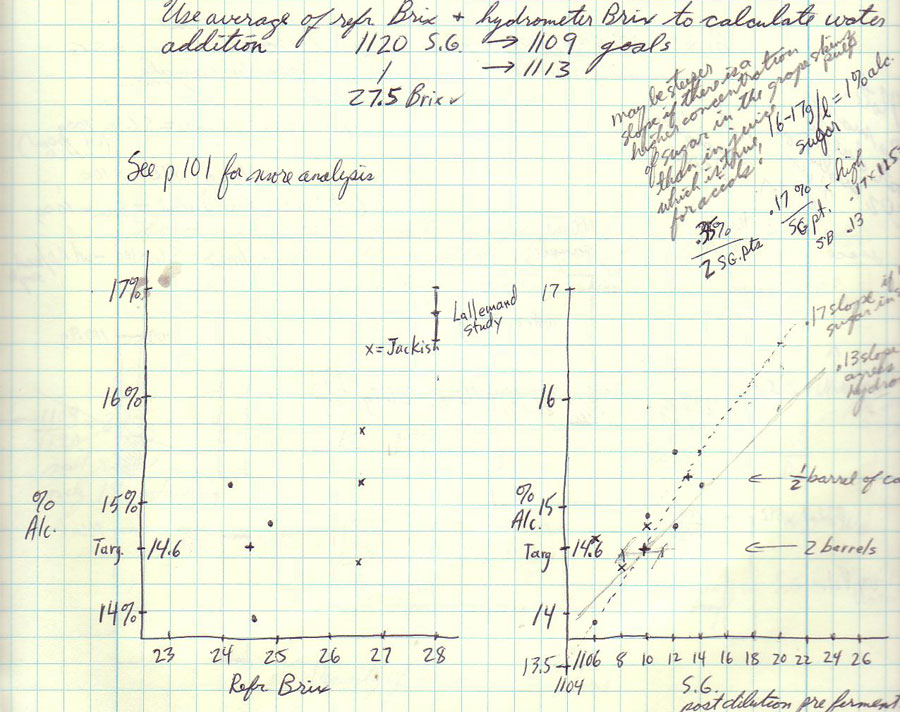 Use average of refr Brix + hydrometer Brix to calculate water
addition 1120 S.G. → 1109 goals
→ 1113
27.5 Brix
may be steeper
slope if there is a
higher concentration
of sugar in the grape skins
pulp
than in juice,
which is true
for acids.
16-17g/l = 1% alc.
sugar
See p 101 for more analysis
2 SG. pts
.17%
SG pt.
- high
.17 x 125
.13
17%
16%
15%
14%
%
Alc.
Targ. 14.6
Lallemand
study
x = Jackish
23 24 25 26 27 28
Refr Brix
17
16
15
14
13.5
%
Alc.
Targ 14.6
.17 slope if
sugar in s
.13 slope
agrees
hydro
← 1/2 barrel of ca
← 2 barrels
1104 1106 8 10 12 14 16 18 20 22 24 26
S.G.
post dilution pre ferment